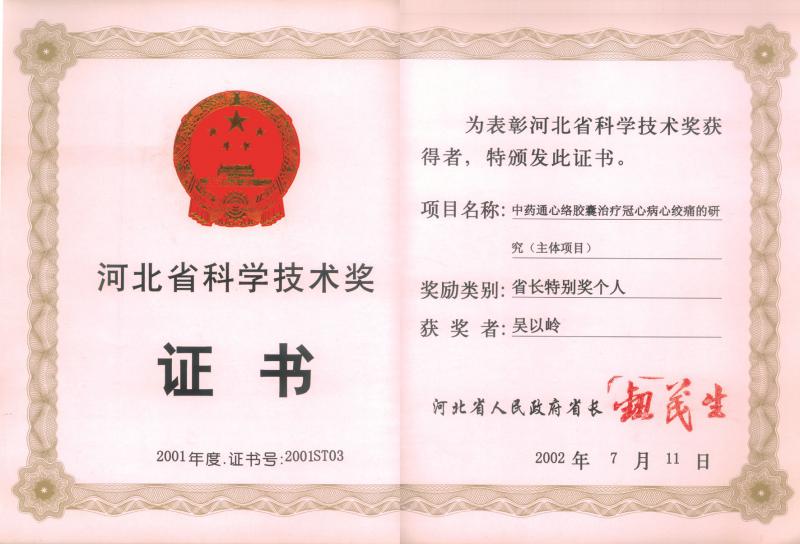 河北省科学技术奖
证 书
2001年度.证书号:2001ST03
为表彰河北省科学技术奖获
得者，特颁发此证书。
项目名称: 中药通心络胶囊治疗冠心病心绞痛的研
究（主体项目）
奖励类别: 省长特别奖个人
获 奖 者: 吴以岭
河北省人民政府省长
2002 年 7 月 11 日